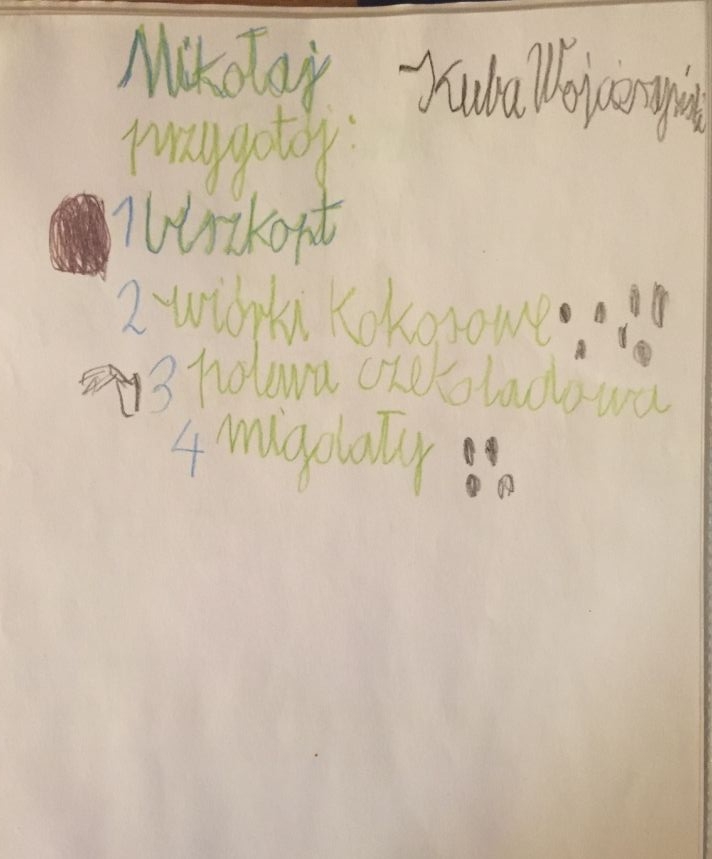 Mikołaj
Kuba
przygotój:
1 biszkopt
2 wiórki kokosowe
3 polewa czekoladowa
4 migdały